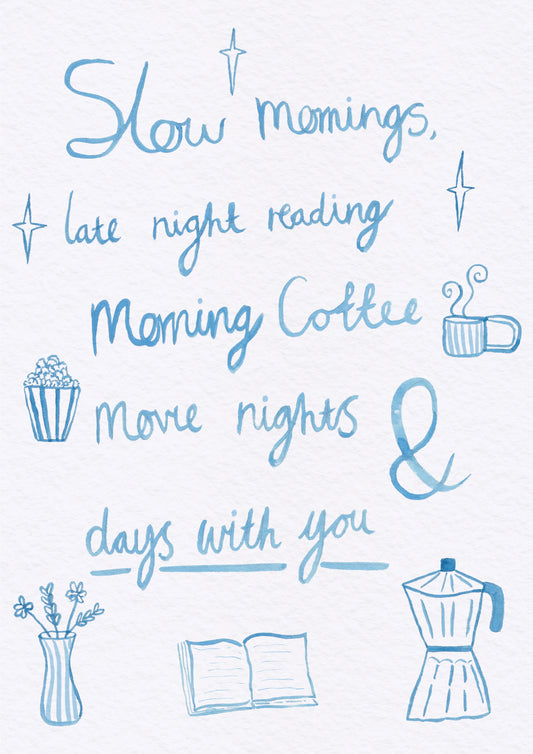 Slow mornings,
late night reading
Morning Coffee
movie nights &
days with you